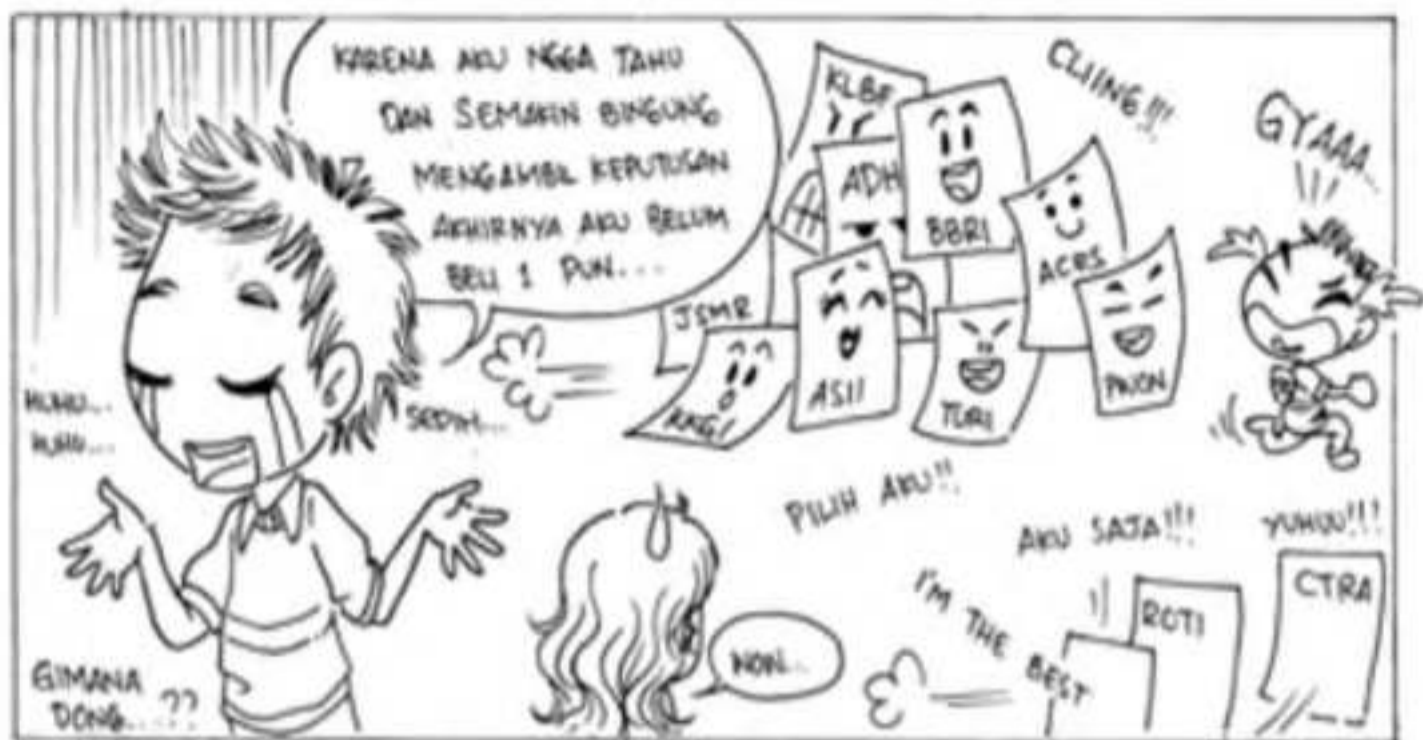 KARENA AKU NGGA TAHU
DAN SEMAKIN BINGUNG
MENGAMBIL KEPUTUSAN
AKHIRNYA AKU BELUM
BELI 1 PUN...
HUHU...
HUHU...
SEDIH...
GIMANA
DONG...??
KLBF
ADH
BBRI
ACES
JSMR
KKGI
ASII
TURI
PWON
CLIING!!!
GYAAA...
PILIH AKU!!
AKU SAJA!!!
YUHUU!!!
I'M THE BEST
ROTI
CTRA